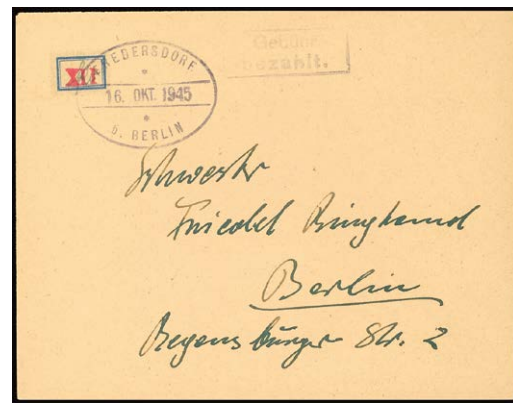 XII
FREDERSDORF
16. OKT. 1945
b. BERLIN
Gebühr
bezahlt.
Schwester
Friedel
Berlin
Regensburger Str. 2